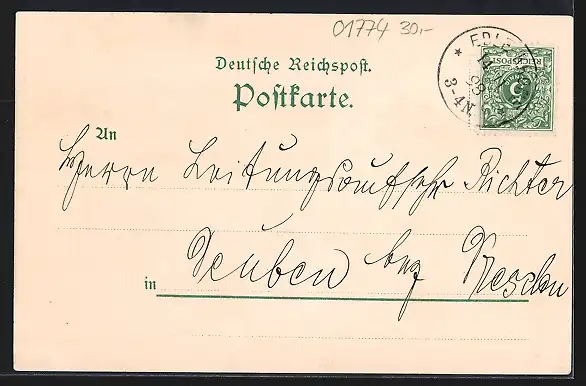 01774 30,-
Deutsche Reichspost.
Postkarte.
REICHSPOST
5
3-4N.
An
Herrn Leitungsaufseher Richter
in Deuben bez Dresden